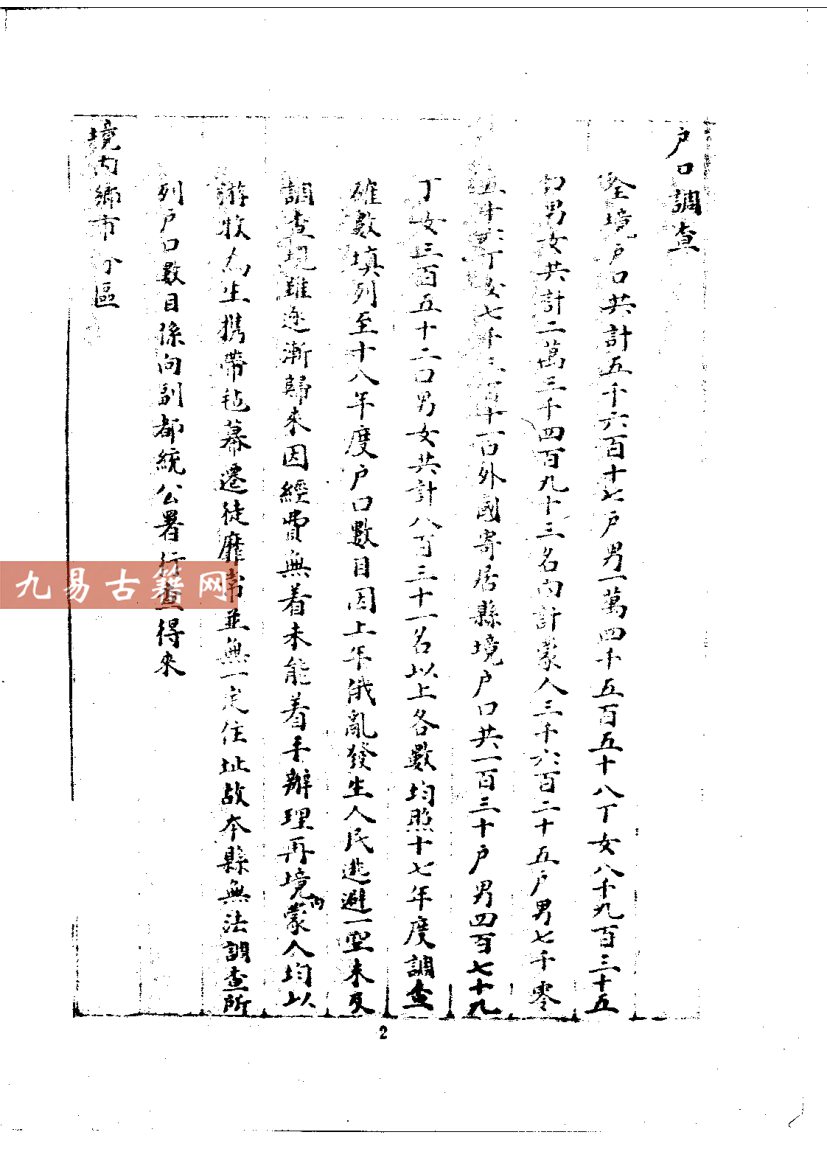 户口調查
全境户口共計五千六百十七户男一萬四千五百五十八丁女八千九百三十五
口男女共計二萬三千四百九十三名內計蒙人三千六百二十五户男七千零
五十六丁女七千三百十一口外國寄居縣境户口共一百三十户男四百七十九
丁女三百五十二口男女共計八百三十一名以上各數均照十七年度調查
確數填列至十八年度户口數目因上年俄亂發生人民逃避一空未及
調查現雖逐漸歸來因經費無着未能着手辦理再境內蒙人均以
游牧為生携帶毡幕遷徙靡常並無一定住址故本縣無法調查所
列户口數目係向副都統公署行查得來
境內鄉市分區
九易古籍网
2